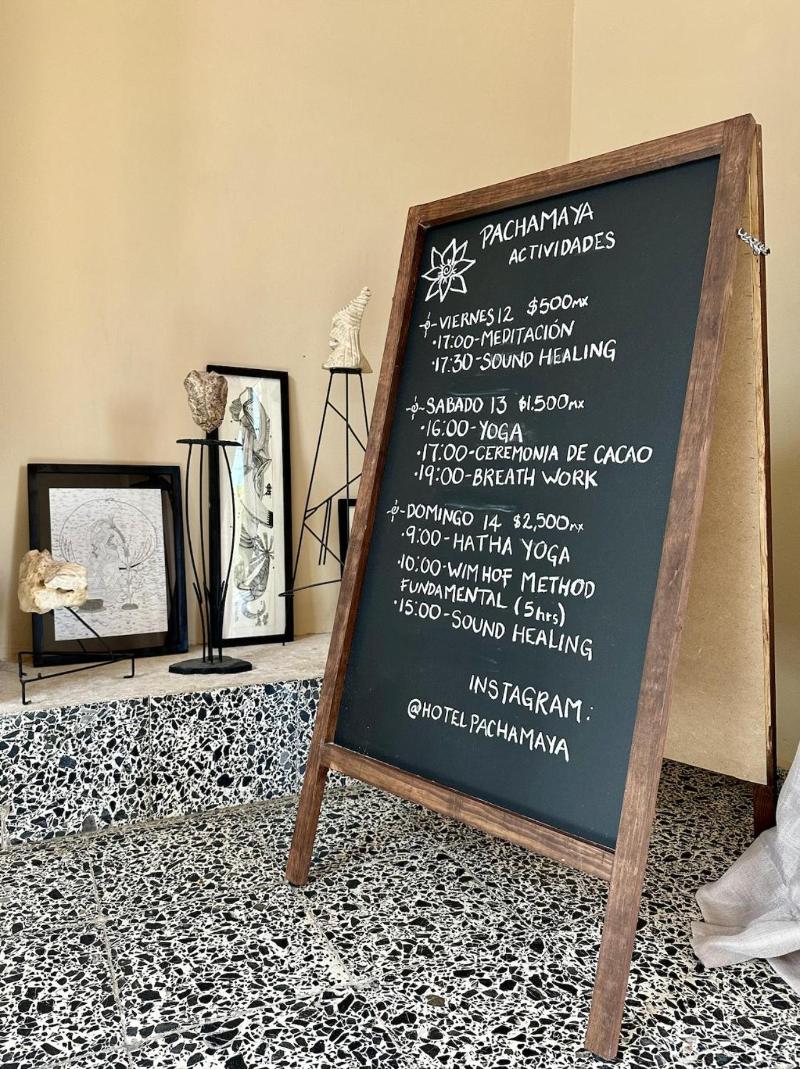 PACHAMAYA
ACTIVIDADES
VIERNES 12 $500mx
·17:00-MEDITACIÓN
·17:30-SOUND HEALING
SABADO 13 $1.500mx
·16:00-YOGA
·17:00-CEREMONIA DE CACAO
·19:00-BREATH WORK
DOMINGO 14 $2,500mx
·9:00-HATHA YOGA
·10:00-WIM HOF METHOD
FUNDAMENTAL (5hrs)
·15:00-SOUND HEALING
INSTAGRAM:
@HOTELPACHAMAYA